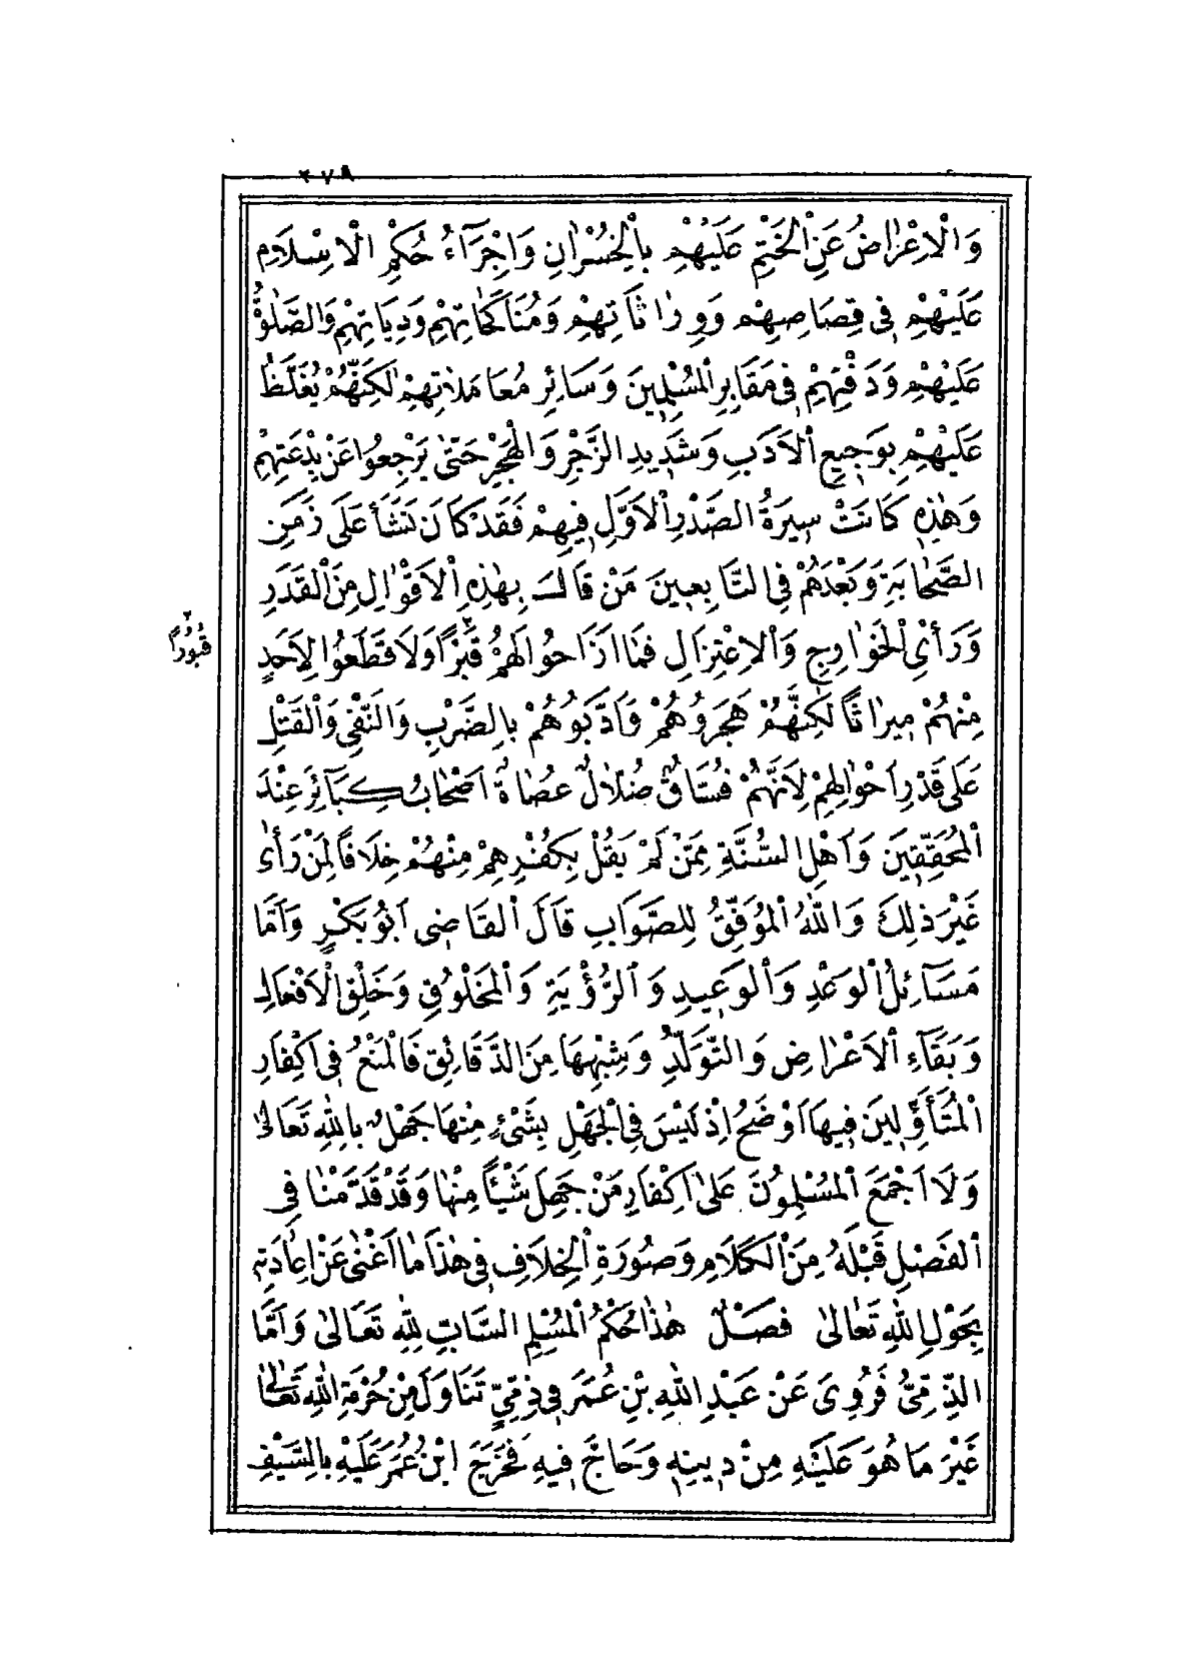 ٢٧٨
وَالْاِعْرَاضُ عَنِ الْخَتْمِ عَلَيْهِمْ بِالْخُسْرَانِ وَاِجْرَآءُ حُكْمِ الْاِسْلَامِ
عَلَيْهِمْ فِى قِصَاصِهِمْ وَوِرَاثَاتِهِمْ وَمُنَاكَحَاتِهِمْ وَدِيَاتِهِمْ وَالصَّلٰوةُ
عَلَيْهِمْ وَدَفْنِهِمْ فِى مَقَابِرِ الْمُسْلِمِينَ وَسَائِرِ مُعَامَلَاتِهِمْ لٰكِنَّهُمْ يُغَلَّظُ
عَلَيْهِمْ بِوَجِيعِ الْاَدَبِ وَشَدِيدِ الزَّجْرِ وَالْهَجْرِ حَتّٰى يَرْجِعُوا عَنْ بِدْعَتِهِمْ
وَهٰذِهِ كَانَتْ سِيرَةُ الصَّدْرِ الْاَوَّلِ فِيهِمْ فَقَدْ كَانَ نَشَأَ عَلَى زَمَنِ
الصَّحَابَةِ وَبَعْدَهُمْ فِى التَّابِعِينَ مَنْ قَالَ بِهٰذِهِ الْاَقْوَالِ مِنَ الْقَدَرِ
وَرَأْىِ الْخَوَارِجِ وَالْاِعْتِزَالِ فَمَا اَزَاحُوا لَهُمْ قَبْرًا وَلَا قَطَعُوا لِاَحَدٍ
قُبُورًا
مِنْهُمْ مِيرَاثًا لٰكِنَّهُمْ هَجَرُوهُمْ وَاَدَّبُوهُمْ بِالضَّرْبِ وَالنَّفْىِ وَالْقَتْلِ
عَلَى قَدْرِ اَحْوَالِهِمْ لِاَنَّهُمْ فُسَّاقٌ ضُلَّالٌ عُصَاةٌ اَصْحَابُ كَبَآئِرَ عِنْدَ
الْمُحَقِّقِينَ وَاَهْلِ السُّنَّةِ مِمَّنْ لَمْ يَقُلْ بِكُفْرِهِمْ مِنْهُمْ خِلَافًا لِمَنْ رَأَى
غَيْرَ ذٰلِكَ وَاللّٰهُ الْمُوَفِّقُ لِلصَّوَابِ قَالَ الْقَاضِى اَبُو بَكْرٍ وَاَمَّا
مَسَآئِلُ الْوَعْدِ وَالْوَعِيدِ وَالرُّؤْيَةِ وَالْمَخْلُوقِ وَخَلْقِ الْاَفْعَالِ
وَبَقَآءِ الْاَعْرَاضِ وَالتَّوَلُّدِ وَشِبْهِهَا مِنَ الدَّقَائِقِ فَالْمَنْعُ فِى اِكْفَارِ
الْمُتَأَوِّلِينَ فِيهَا اَوْضَحُ اِذْ لَيْسَ فِى الْجَهْلِ بِشَىْءٍ مِنْهَا جَهْلٌ بِاللّٰهِ تَعَالٰى
وَلَا اَجْمَعَ الْمُسْلِمُونَ عَلٰى اِكْفَارِ مَنْ جَهِلَ شَيْئًا مِنْهَا وَقَدْ قَدَّمْنَا فِى
الْفَصْلِ قَبْلَهُ مِنَ الْكَلَامِ وَصُورَةِ الْخِلَافِ فِى هٰذَا مَا اَغْنٰى عَنْ اِعَادَتِهِ
بِحَوْلِ اللّٰهِ تَعَالٰى فَصْلٌ هٰذَا حُكْمُ الْمُسْلِمِ السَّابِّ لِلّٰهِ تَعَالٰى وَاَمَّا
الذِّمِّىُّ فَرُوِىَ عَنْ عَبْدِ اللّٰهِ بْنِ عُمَرَ فِى ذِمِّىٍّ تَنَاوَلَ مِنْ حُرْمَةِ اللّٰهِ تَعَالٰى
غَيْرَ مَا هُوَ عَلَيْهِ مِنْ دِينِهِ وَحَاجَّ فِيهِ فَخَرَجَ ابْنُ عُمَرَ عَلَيْهِ بِالسَّيْفِ